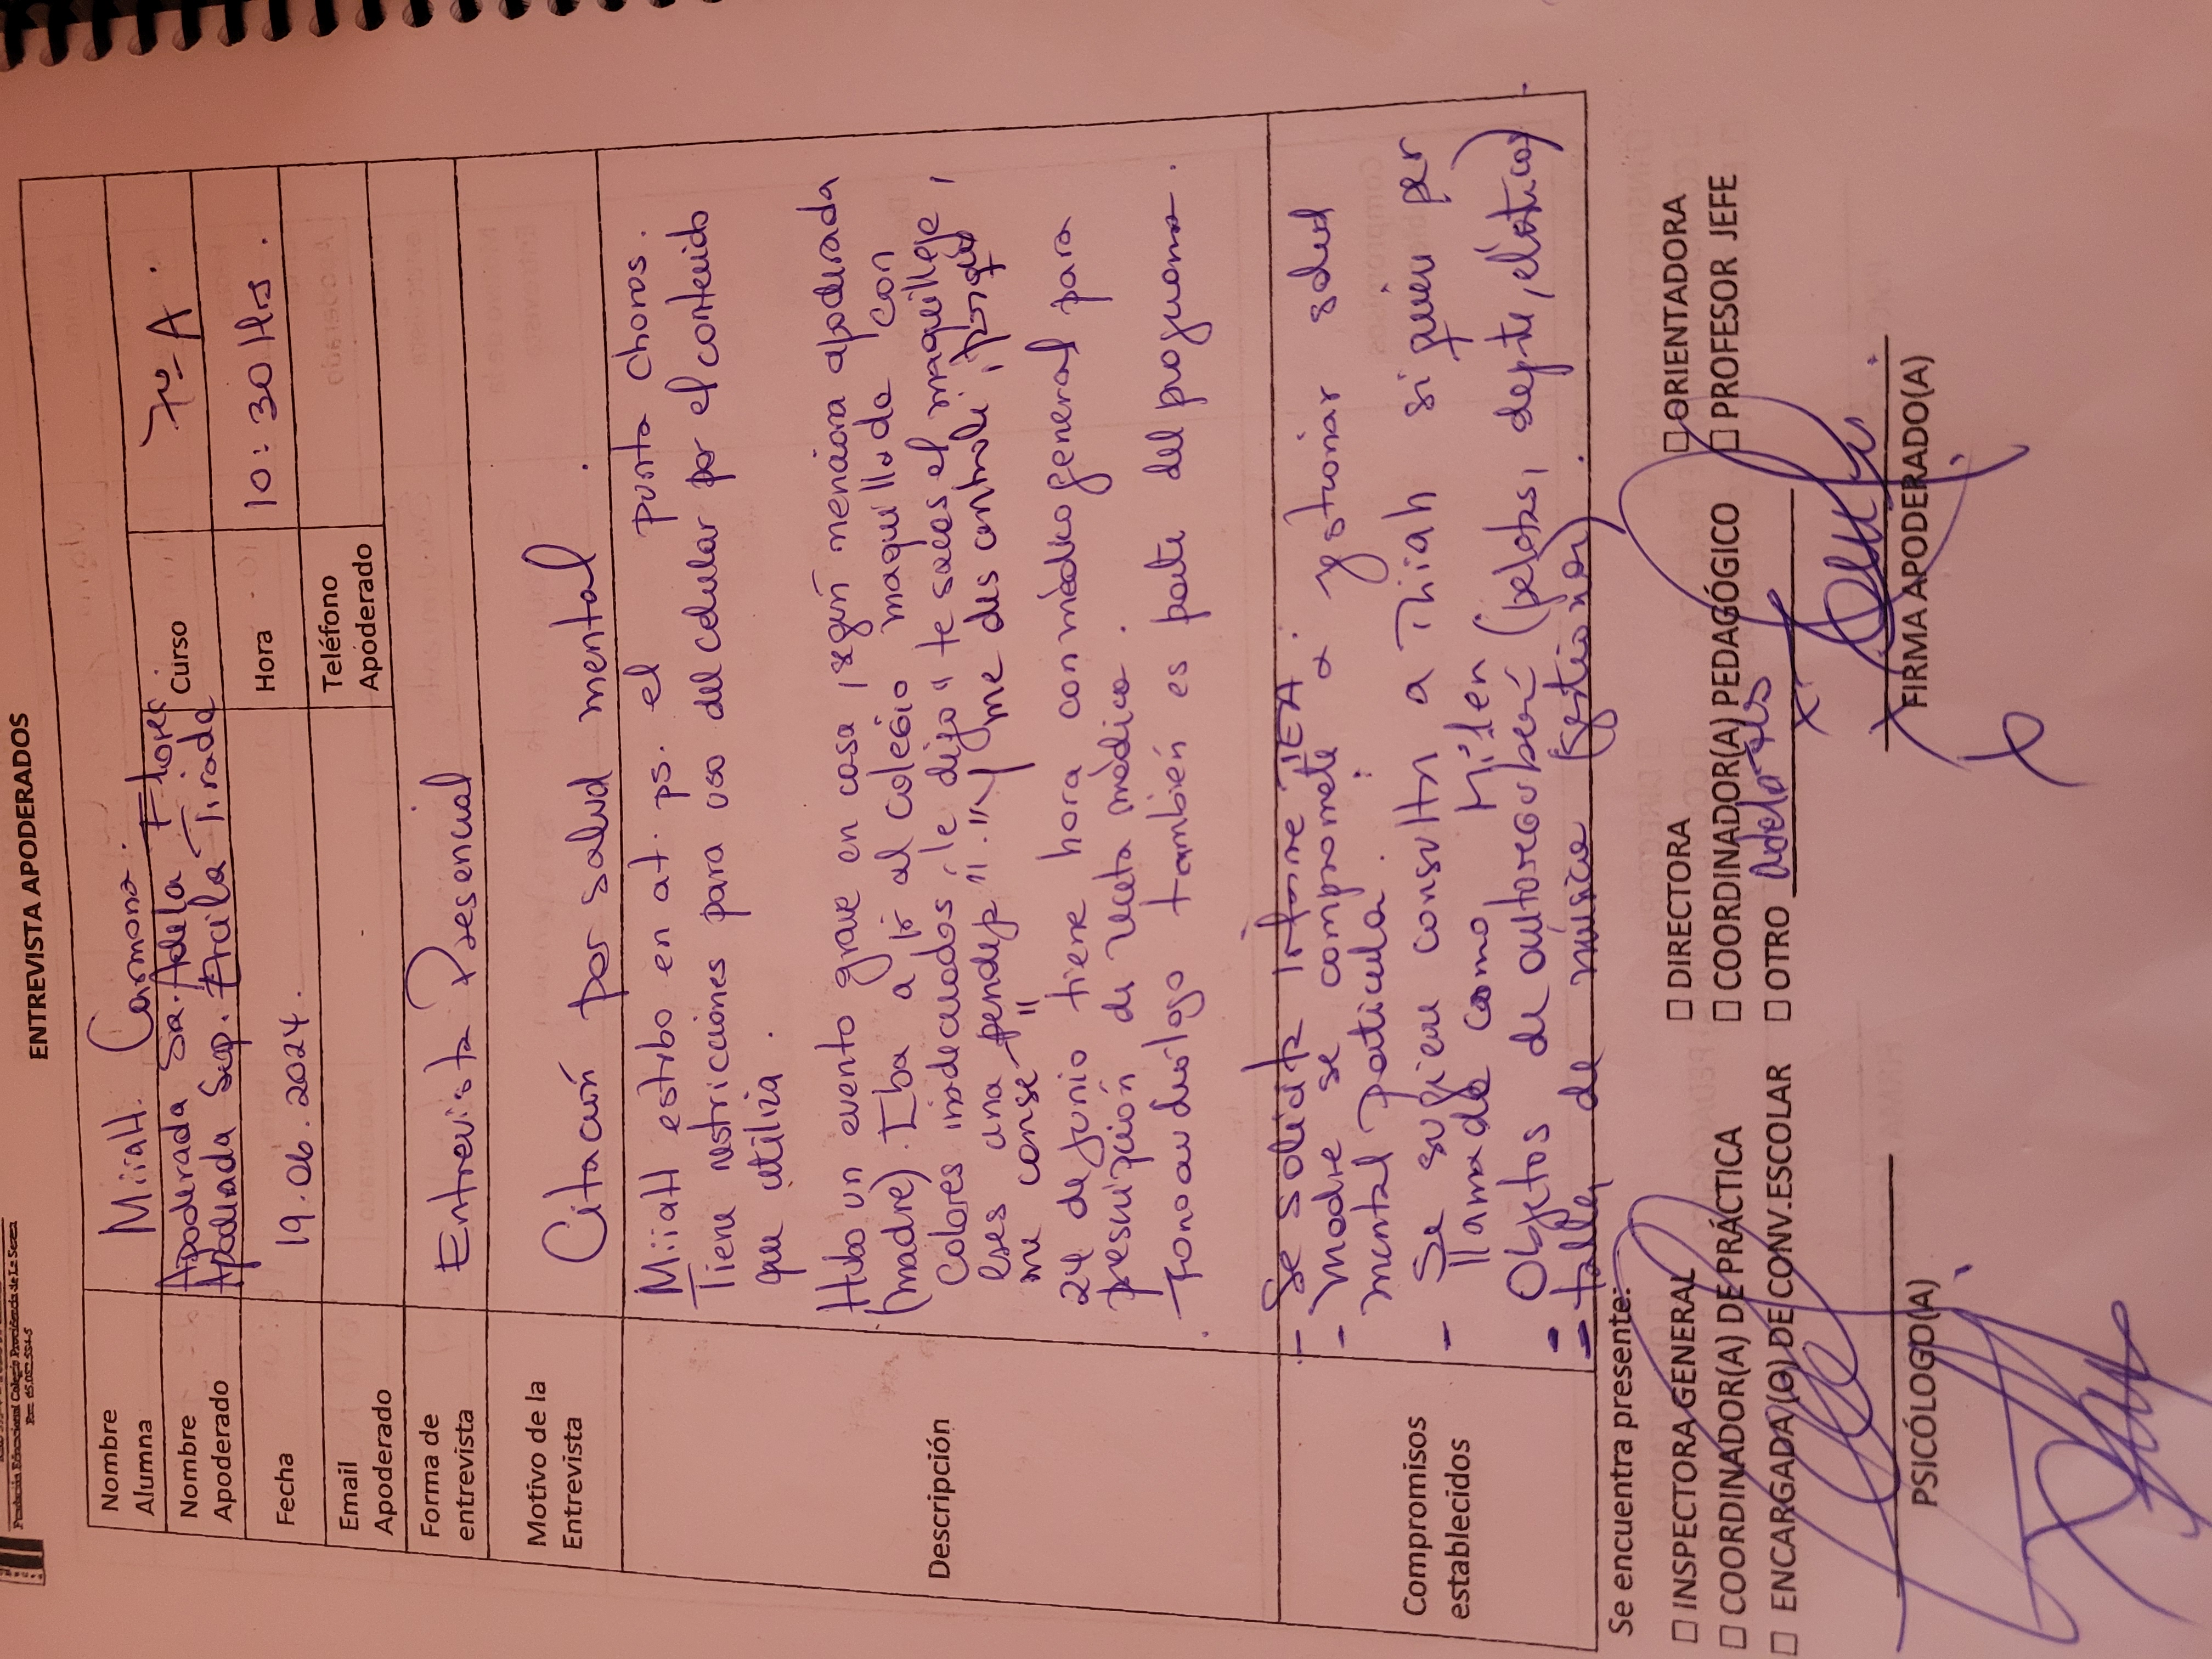 Fundación Educacional Colegio Providencia de La Serena
ENTREVISTA APODERADOS
Nombre Alumna Miiath. Carmona.
Nombre Apoderado Apoderada Sra. Adela Flores Curso 7º A.
Apoderada Sup. Ercila Tirado
Fecha 19.06.2024. Hora 10:30 Hrs.
Email Apoderado Teléfono Apoderado
Forma de entrevista Entrevista Presencial
Motivo de la Entrevista Citación por salud mental.
Descripción
Miiath estubo en at. ps. el punta choros.
Tiene restricciones para uso del celular por el contenido
que utiliza.
Hubo un evento grave en casa, según menciona apoderada
(madre). Iba a ir al colegio maquillada con
colores inadecuados, le dijo "te sacas el maquilleje,
eres una pendeja". "Y me descontrole, porque
me cansé"
24 de junio tiene hora con médico general para
prescripción de receta médica.
Fonoaudiólogo también es parte del programa.
Compromisos establecidos
- Se solicita informe TEA.
- madre se compromete a gestionar salud
mental particular.
- Se sugiere consultar a Miiah si quiere ser
llamada como Milen
- Objetos de autoregulación (pelotas, deporte, elásticos)
- taller de música (gestionar).
Se encuentra presente:
□ INSPECTORA GENERAL □ DIRECTORA □ ORIENTADORA
□ COORDINADOR(A) DE PRÁCTICA □ COORDINADOR(A) PEDAGÓGICO □ PROFESOR JEFE
□ ENCARGADA (O) DE CONV.ESCOLAR □ OTRO
PSICÓLOGO(A) FIRMA APODERADO(A)